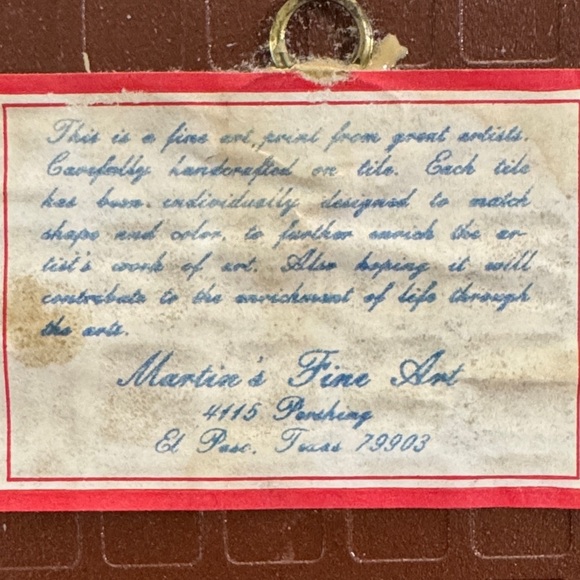 This is a fine art, print from great artists.
Carefully handcrafted on tile. Each tile
has been individually designed to match
shape and color, to further enrich the ar-
tist's work of art. Also hoping it will
contribute to the enrichment of life through
the arts.
Martin's Fine Art
4115 Pershing
El Paso, Texas 79903